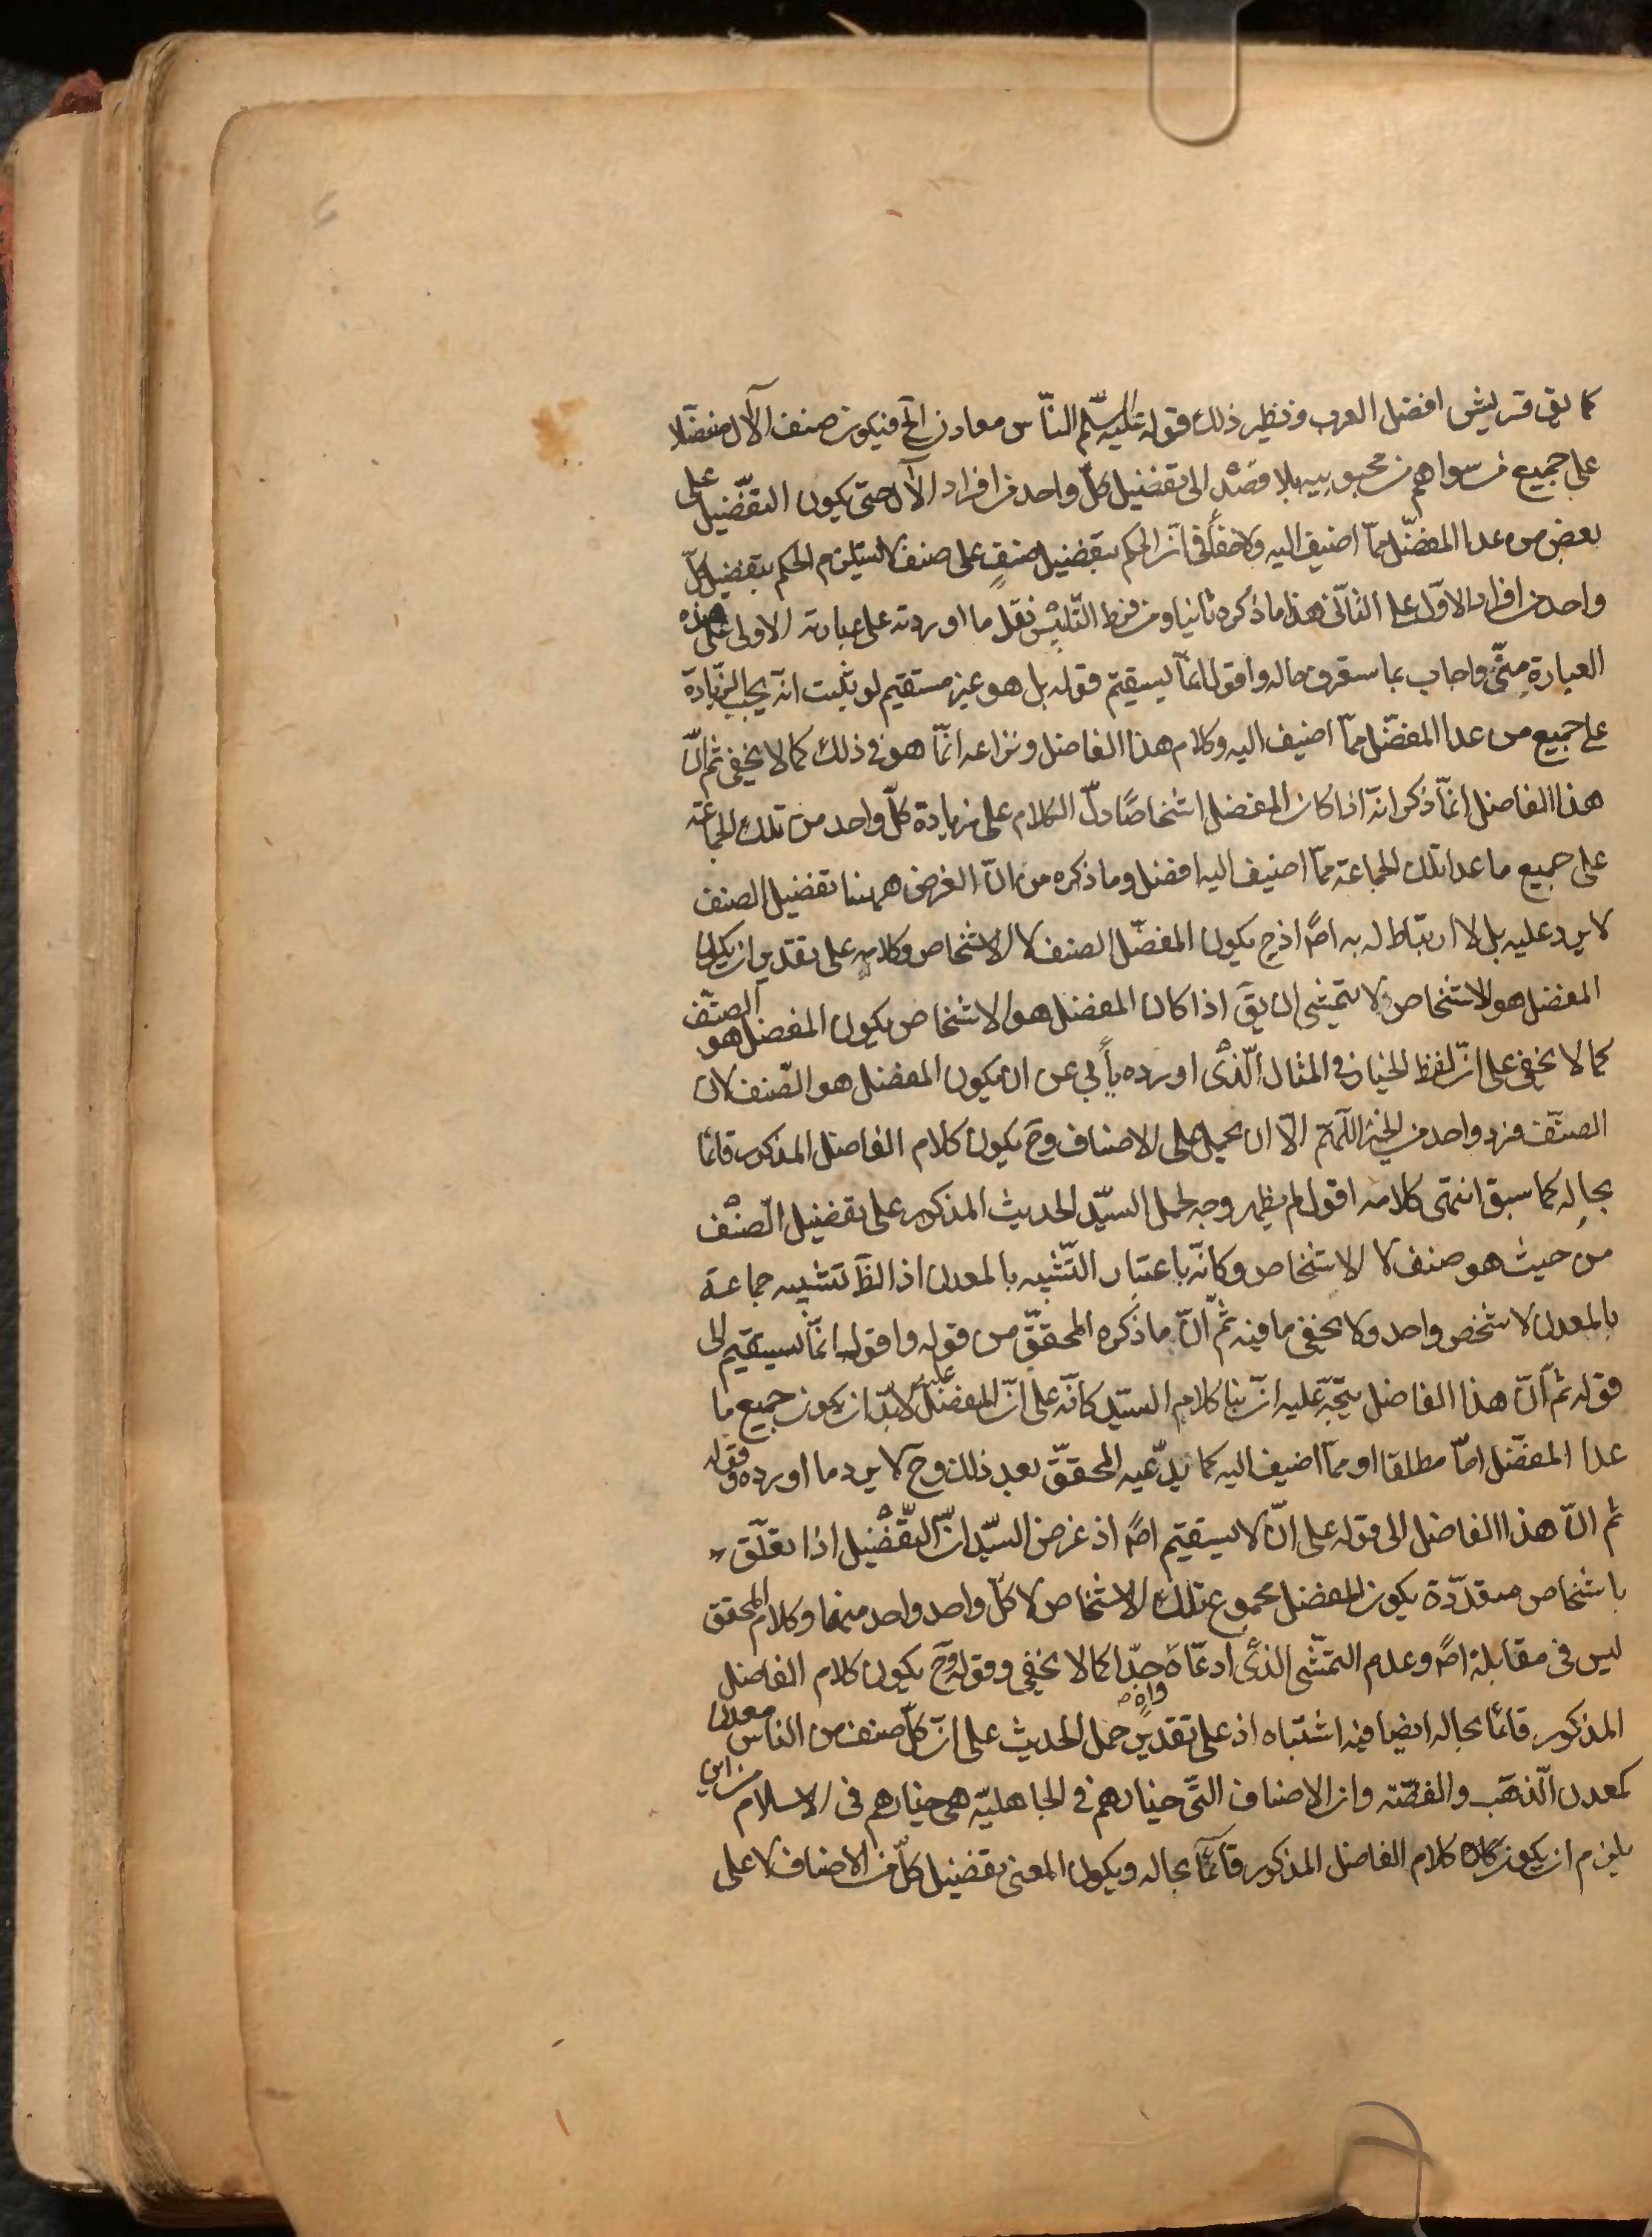 كما يق قريش افضل العرب ونظير ذلك قوله عليه السلّم النّاس معادن الخ فيكون صنف الآل مفضّلا
على جميع من سواهم من محبوبيه بلا قصدٍ الى تفضيل كلّ واحد من افراد الآل حتى يكون التفضّيل على
بعض من عدا المفضّل ممّا اضيف اليه ولا خفأ في انّ الحكم بتفضيل صنفٍ على صنف لا يستلزم الحكم بتفضيل كلّ
واحد من افراد الاوّل على الثاني هذا ما ذكره ثانيا ومن فرط التّلبيس نقل ما اوردته على عبارته الاولى على هذه
العبارة مِنّى واجاب بما ستعرف حاله واقول انّما يستقيم قوله بل هو غير مستقيم لو ثبت انّه يجب الزّيادة
على جميع من عدا المفضّل ممّا اضيف اليه وكلام هذا الفاضل ونزاعه انّما هو في ذلك كما لا يخفى ثم انّ
هذا الفاضل انّما ذكر انّه اذا كان المفضل اشخاصًا دلّ الكلام على زيادة كلّ واحد من تلك الجماعة
على جميع ما عدا تلك الجماعة ممّا اضيف اليه افضل وما ذكره من انّ الغرض ههنا تفضيل الصنف
لا يرد عليه بل لا ارتباط له به اصًا اذ ح يكون المفضّل الصنف لا الاشخاص وكلامه على تقدير ان يكون
المفضل هو الاشخاص ولا يتمشى ان يقَ اذا كان المفضل هو الاشخاص يكون المفضل هو الصنّف
كما لا يخفى على انّ لفظ الخيار في المثال الّذى اورده يأبى عن ان يكون المفضل هو الصّنف لان
الصنّف فرد واحد من الخير اللّهمّ الّا ان يحمل على الاصناف وح يكون كلام الفاضل المذكور قائما
بحاله كما سبق انتهى كلامه اقول لم يظهر وجه لحمل السيّد الحديث المذكور على تفضيل الصّنف
من حيث هو صنف لا الاشخاص وكانّه باعتبار التّشبيه بالمعدن اذ الظَ تشبيه جماعة
بالمعدن لا شخص واحد ولا يخفى ما فيه ثمّ انّ ما ذكره المحقّق من قوله واقول انّما يستقيم الى
قوله ثم انّ هذا الفاضل يتجّه عليه انّ بنا كلام السيّد كانّه على انّ المفضل عليه لابدّ ان يكون جميع ما
عدا المفضّل امّا مطلقا او ممّا اضيف اليه كما يدّعيه المحقّق بعد ذلك وح لا يرد ما اورده وقوله
ثم انّ هذا الفاضل الى قوله على انّ لا يستقيم اصًا اذ غرض السيّد انّ التفضّيل اذا تعلّق
باشخاص متعدّدة يكون المفضل مجموع تلك الاشخاص لا كلّ واحد واحد منها وكلام المحقق
ليس في مقابلة اصًا وعدم التمّشى الذى ادعّاه واه جدّا كما لا يخفى وقوله وح يكون كلام الفاضل
المذكور قائمًا بحاله ايضا فيه اشتباه اذ على تقدير حمل الحديث على انّ كلّ صنف من الناس معدن
كمعدن الّذهب والفضّة وان الاصناف التّى خيارهم في الجاهليّة هى خيارهم في الاسلام من اين
يلزم ان يكون كلام الفاضل المذكور قائمًا بحاله ويكون المعنى تفضيل كلّ من الاصناف لا على